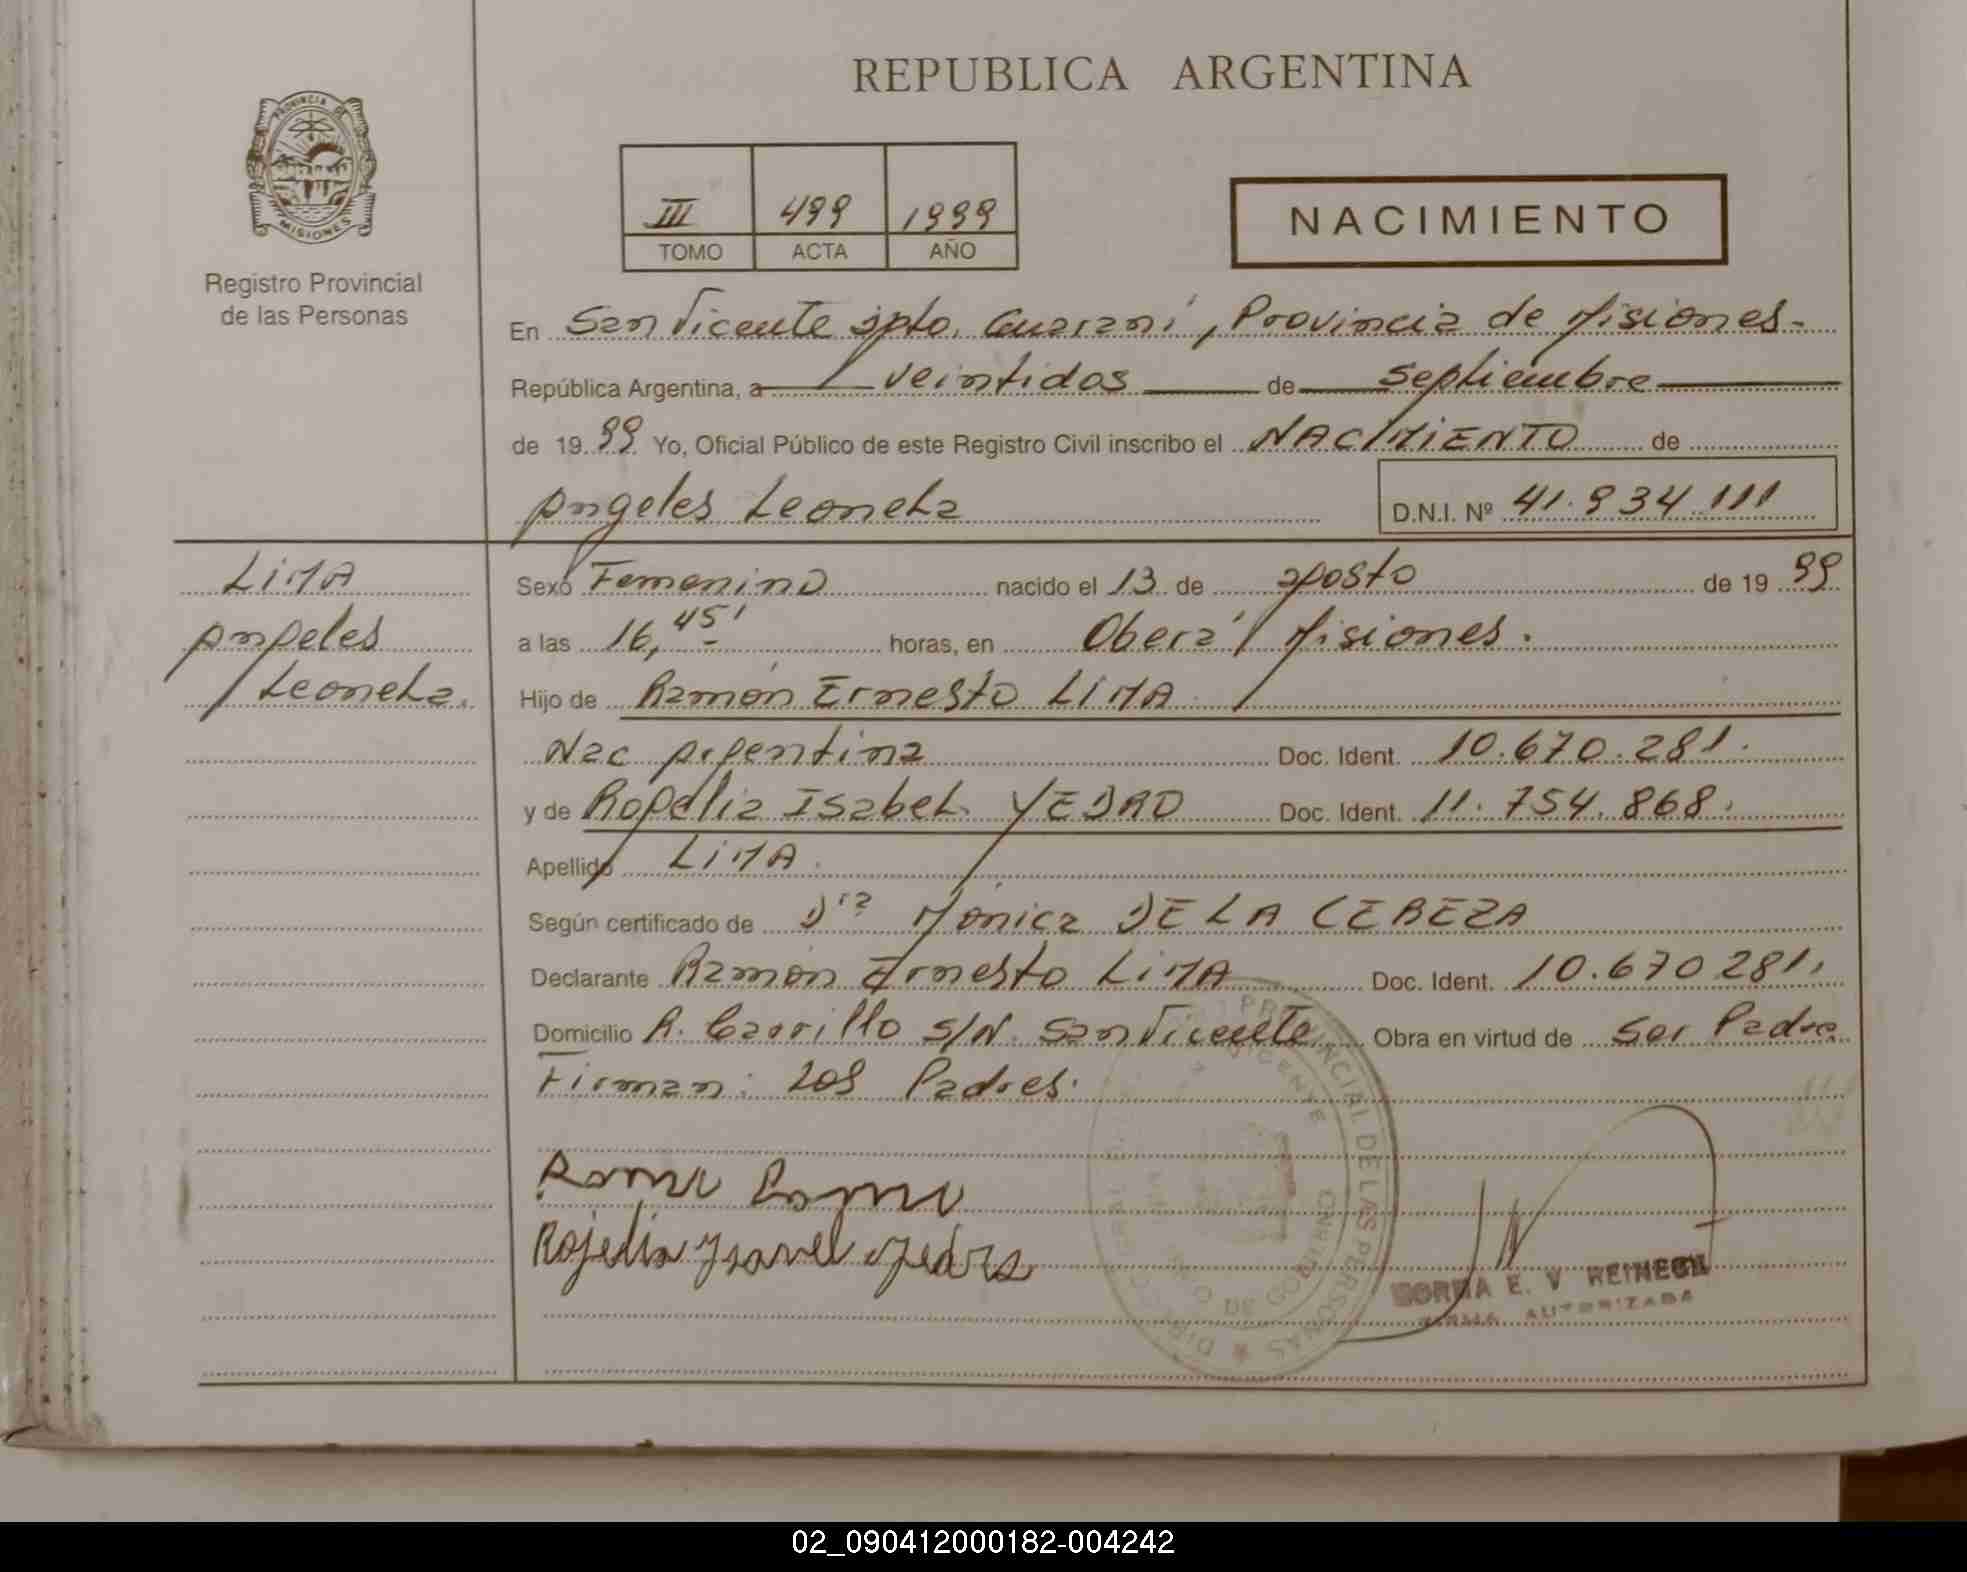 REPUBLICA ARGENTINA
PROVINCIA DE
MISIONES
Registro Provincial
de las Personas
III 499 1999
TOMO ACTA AÑO
NACIMIENTO
En San Vicente Dpto. Guaraní, Provincia de Misiones.
República Argentina, a veintidos de septiembre
de 19 99 Yo, Oficial Público de este Registro Civil inscribo el NACIMIENTO de
Angeles Leonela
D.N.I. Nº 41.934.111
LIMA
Angeles
Leonela.
Sexo Femenino nacido el 13 de agosto de 19 99
a las 16,45' horas, en Oberá, Misiones.
Hijo de Ramón Ernesto LIMA
Nac Argentina Doc. Ident. 10.670.281.
y de Rogelia Isabel YEDRO Doc. Ident. 11.754.868.
Apellido LIMA.
Según certificado de Dra Mónica DE LA CEBEZA
Declarante Ramón Ernesto LIMA Doc. Ident. 10.670281.
Domicilio R. Carrillo S/N. San Vicente Obra en virtud de Ser Padre
Firman: Los Padres.
Rojelia Ysavel
PROVINCIAL DE LAS PERSONAS
E. V. REINECH
FIRMA AUTORIZADA
02_090412000182-004242